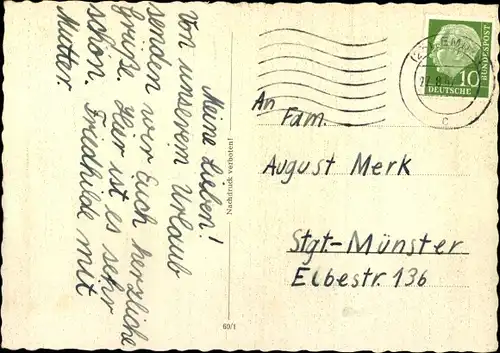 Meine Lieben!
Von unserem Urlaub
senden wir Euch herzliche
Grüße. Hier ist es sehr
schön. Friedhilde mit
Mutter
Nachdruck verboten!
69/1
An
Fam.
August Merk
Stgt-Münster
Elbestr. 136
10
DEUTSCHE
BUNDESPOST
c